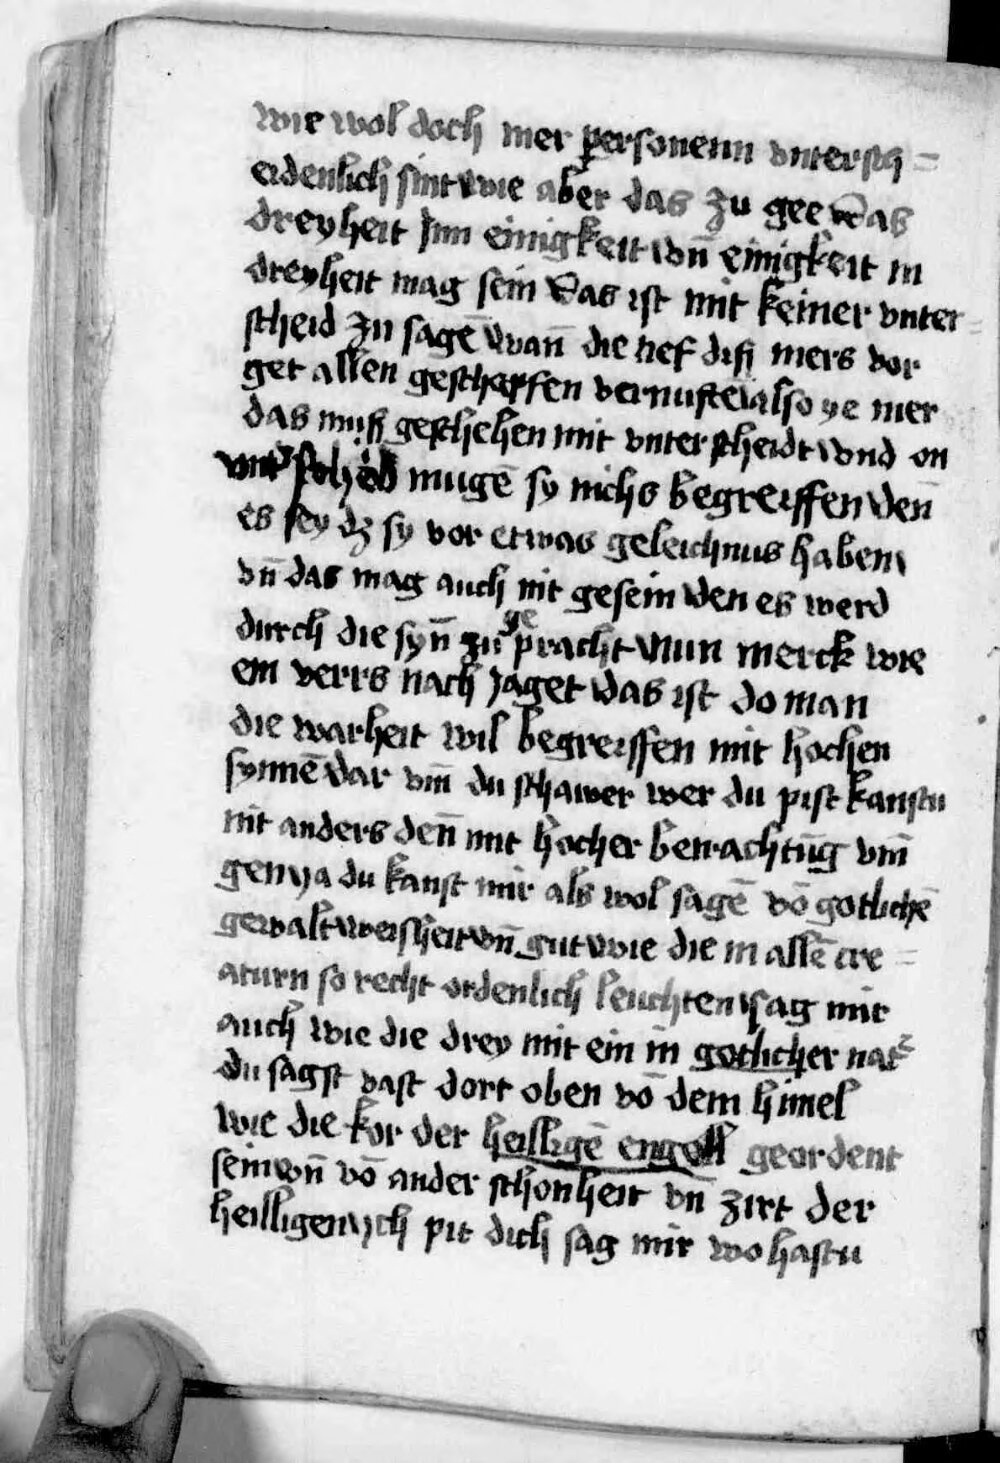 wie wol doch mer personenn vntersch=
eidenlich sint wie aber das zu gee das
dreyheit Jnn einigkeit vn̄ einigkeit in
dreyheit mag sein das ist mit keiner vnter=
scheid zu sagē wan̄ die tief diß mers vor
get allen geschopffen vernuftē also ye mer
das muß geschehen mit vnterscheidt vnd on
mugē sy nichs begreiffen den̄
es sey dz sy vor etwas geleichnus haben
vn̄ das mag auch nit gesein den es werd
durch die syn̄ zu gepracht Nun merck wie
ein verrs nach Jaget das ist do man
die warheit wil begreiffen mit hochen
synnē dar vm̄ du schawer wer du pist kanstu
nit anders den̄ mit hocher betrachtūg vm̄
gen ya du kanst mir als wol sagē vō gotlichē
gewalt weisheit vn̄ gut wie die in allē cre=
aturn so recht ordenlich leuchten sag mir
auch wie die drey mit ein in gotlicher nat̉
du sagst vast dort oben vō dem himel
wie die kor der heilligē engell geordent
sein vn̄ vō ander schonheit vn̄ zirt der
heilligen ych pit dich sag mir wo hastu